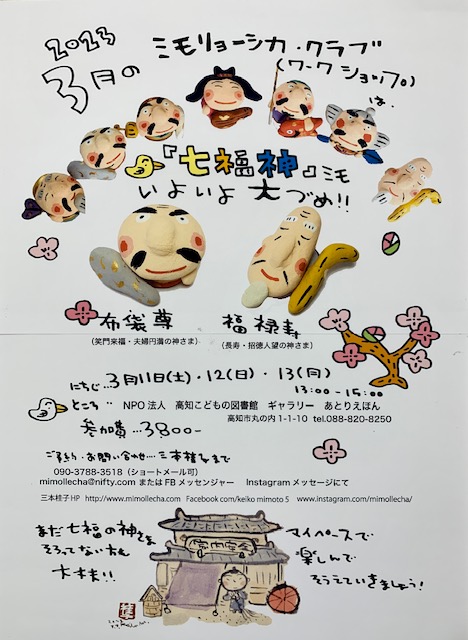 2023
3月の
ミモリョーシカ・クラブ
(ワークショップ)
は、
『七福神』ミモ
いよいよ大づめ!!
布袋尊
(笑門来福・夫婦円満の神さま)
福禄寿
(長寿・招徳人望の神さま)
にちじ…3月11日(土)・12(日)・13(月)
13:00-15:00
ところ… NPO法人 高知こどもの図書館 ギャラリー あとりえほん
高知市丸の内1-1-10 tel.088-820-8250
参加費…3800-
三本桂子まで
090-3788-3518 (ショートメール可)
mimollecha@nifty.com またはFBメッセンジャー Instagramメッセージにて
三本桂子HP http://www.mimollecha.com Facebook.com/keiko mimoto 5 www.instagram.com/mimollecha/
まだ七福の神さま
そろってない方も
大丈夫!!
マイペースで
楽しんで
そろえていきましょう!
家内安全